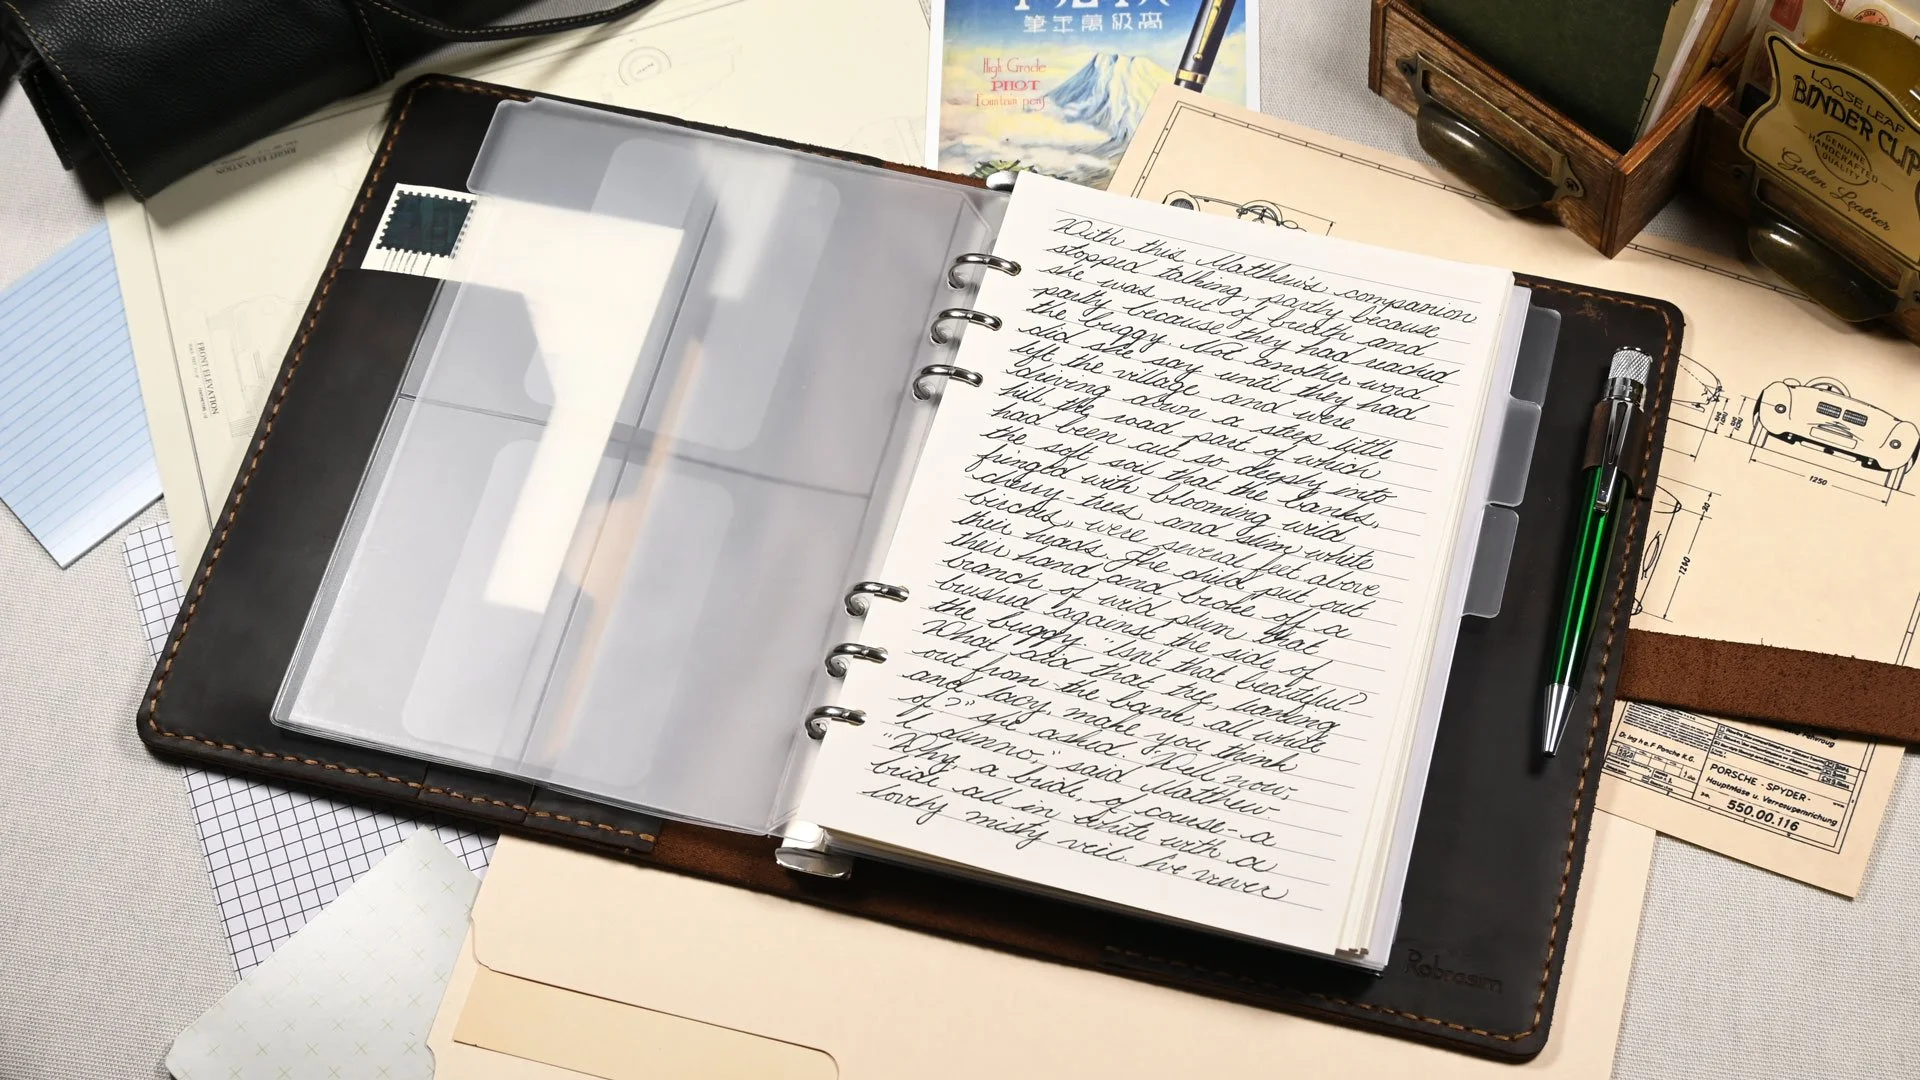 筆年萬級高
High Grade
PILOT
Fountain pens
LOOSE LEAF
BINDER CLIP
GENUINE
HANDCRAFTED
QUALITY
Galen Leather
RIGHT ELEVATION
FRONT ELEVATION
With this Matthew's companion
stopped talking, partly because
she was out of breath and
partly because they had reached
the buggy. Not another word
did she say until they had
left the village and were
driving down a steep little
hill, the road part of which
had been cut so deeply into
the soft soil that the banks,
fringed with blooming wild
cherry-trees and slim white
birches, were several feet above
their heads. The child put out
their hand and broke off a
branch of wild plum that
brushed against the side of
the buggy. "isn't that beautiful?
What did that tree, leaning
out from the bank, all white
and lacy, make you think
of?" she asked. "Well now,
I dunno," said Matthew.
"Why, a bride, of course-a
bride all in white with a
lovely misty veil. I've never
1250
1260
Dr. Ing h.c. F. Porsche K.G.
PORSCHE - SPYDER -
Hauptnäse u. Versperrichtung
550.00.116
Robrosim